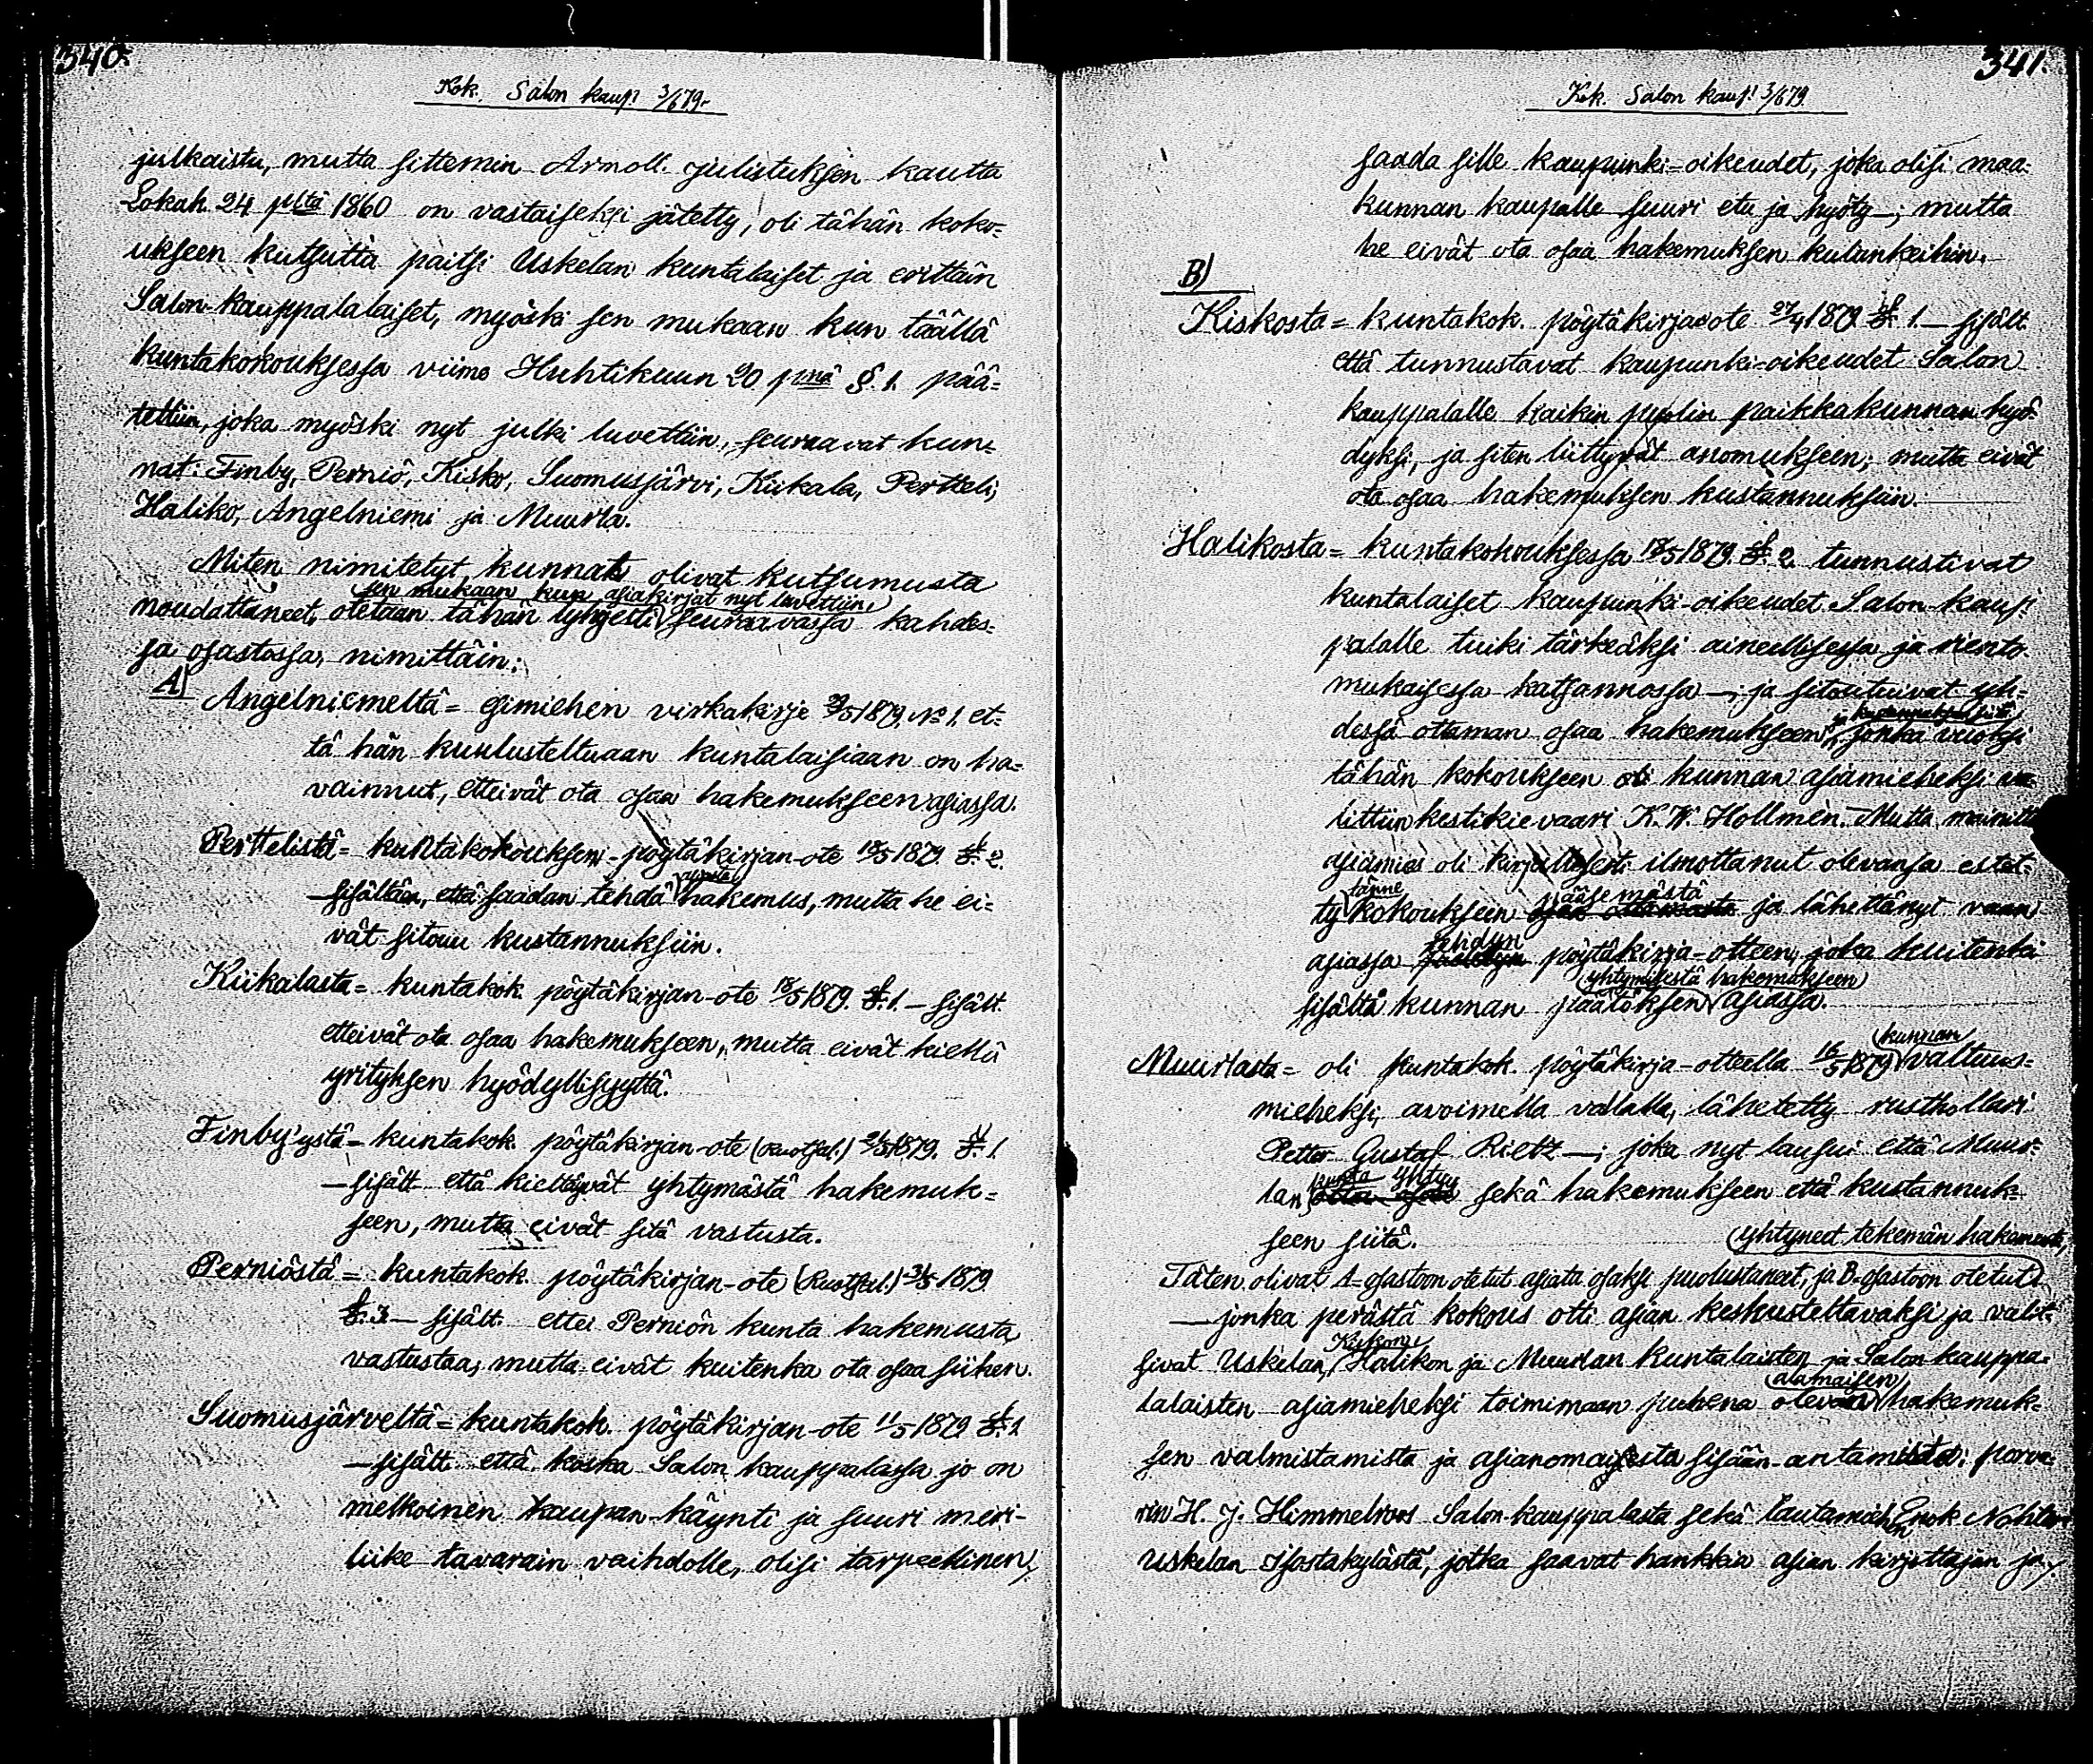 340.
Kok. Salon kaup. 3/6 79.
julkaistu, mutta sittemin Armoll. Julistuksen kautta
Lokak. 24 pltä 1860 on vastaiseksi jätetty, oli tähän koko-
ukseen kutsuttu paitsi Uskelan kuntalaiset ja erittäin
Salon-kauppalalaiset, myöski sen mukaan kun täällä
kuntakokouksessa viime Huhtikuun 20 pnä §. 1. pää-
tettiin, joka myöski nyt julki luvettiin, seuraavat kun-
nat: Finby, Perniö, Kisko, Suomusjärvi, Kiikala, Pertteli,
Haliko, Angelniemi ja Muurla.
Miten nimitetyt kunnat olivat kutsumusta
sen mukaan kun asiakirjat nyt luvettiin,
noudattaneet, otetaan tähän lyhyesti seuraavassa kahdes-
sa osastossa, nimittäin:
A)
Angelniemeltä = esimiehen virkakirje /5 1879, No 1. et-
tä hän kuulusteltuaan kuntalaisiaan on ha-
vainnut, etteivät ota osaa hakemukseen asiassa.
Perttelistä = kuntakokouksen-pöytäkirjan-ote 18/5 1879. §. 2.
- sisältäin, että saadan tehdä hakemus, mutta he ei-
vät sitouu kustannuksiin.
Kiikalasta = kuntakok. pöytäkirjan-ote 18/5 1879. §. 1. – sisält.
etteivät ota osaa hakemukseen, mutta eivät kiellä
yrityksen hyödyllisyyttä.
Finby'ystä = kuntakok. pöytäkirjan-ote (Ruotsal.) /5 1879. §. 1.
– sisält. että kieltäyvät yhtymästä hakemuk-
seen, mutta eivät sitä vastusta.
Perniöstä = kuntakok. pöytäkirjan-ote (Ruotsal.) /5 1879
§. 3. – sisält. ettei Perniön kunta hakemusta
vastustaa, mutta eivät kuitenka ota osaa siihen.
Suomusjärveltä = kuntakok. pöytäkirjan-ote 11/5 1879 §. 1.
– sisält. että koska Salon kauppalassa jo on
melkoinen kaupan-käynti ja suuri meri-
liike tavarain vaihdolle, olisi tarpeellinen
341.
Kok. Salon kaup. 3/6 79.
saada sille kaupunki-oikeudet, joka olisi maa-
kunnan kaupalle suuri etu ja hyöty –; mutta
he eivät ota osaa hakemuksen kulunkeihin.
B)
Kiskosta = kuntakok. pöytäkirjan ote 27/4 1879 §. 1. – sisält.
että tunnustavat kaupunki-oikeudet Salon
kauppalalle kaikin puolin paikkakunnan hyö-
dyksi, ja siten liittyvät anomukseen; mutta eivät
ota osaa hakemuksen kustannuksiin.
Halikosta = kuntakokouksessa 18/5 1879. §. 2. tunnustivat
kuntalaiset kaupunki-oikeudet Salon-kaup-
palalle tuiki tärkeäksi aineellisessa ja riento-
mukaisessa katsannossa –; ja sitoutuivat yh-
dessä ottaman osaa hakemukseen, jonka vuoksi
tähän kokoukseen oli kunnan asiamieheksi va-
littiin kestikievaari K. W. Hollmén. Mutta mainittu
asiamies oli kirjallisesti ilmottanut olevansa estet-
tänne pääsemästä
ty kokoukseen ja lähettänyt vaan
tehdyn
asiassa pöytäkirja-otteen, joka kuitenki
yhtymisestä hakemukseen
sisältä kunnan päätöksen asiassa.
kunnan
Muurlasta = oli kuntakok. pöytäkirja-otteella 16/5 1879 valtuus-
mieheksi, avoimella vallalla, lähetetty rusthollari
Petter Gustaf Rietz –; joka nyt lausui että Muur-
kunta yhtyy
lan sekä hakemukseen että kustannuk-
seen siitä.
yhtyneet tekemän hakemusta,
Täten olivat A-osastoon otetut asiata osaksi puolustaneet, ja B-osastoon otetut
– jonka perästä kokous otti asian keskusteltavaksi ja valit-
Kiskon,
sivat Uskelan, Halikon ja Muurlan kuntalaisten ja Salon kauppa-
alamaisen
lalaisten asiamieheksi toimimaan puhena olevan hakemuk-
sen valmistamista ja asianomaisesta sisään-antamista: porva-
rin H. J. Himmelroos Salon-kauppalasta sekä lautamiehen Enok
Uskelan Isostakylästä, jotka saavat hankkia asian kirjottajan ja